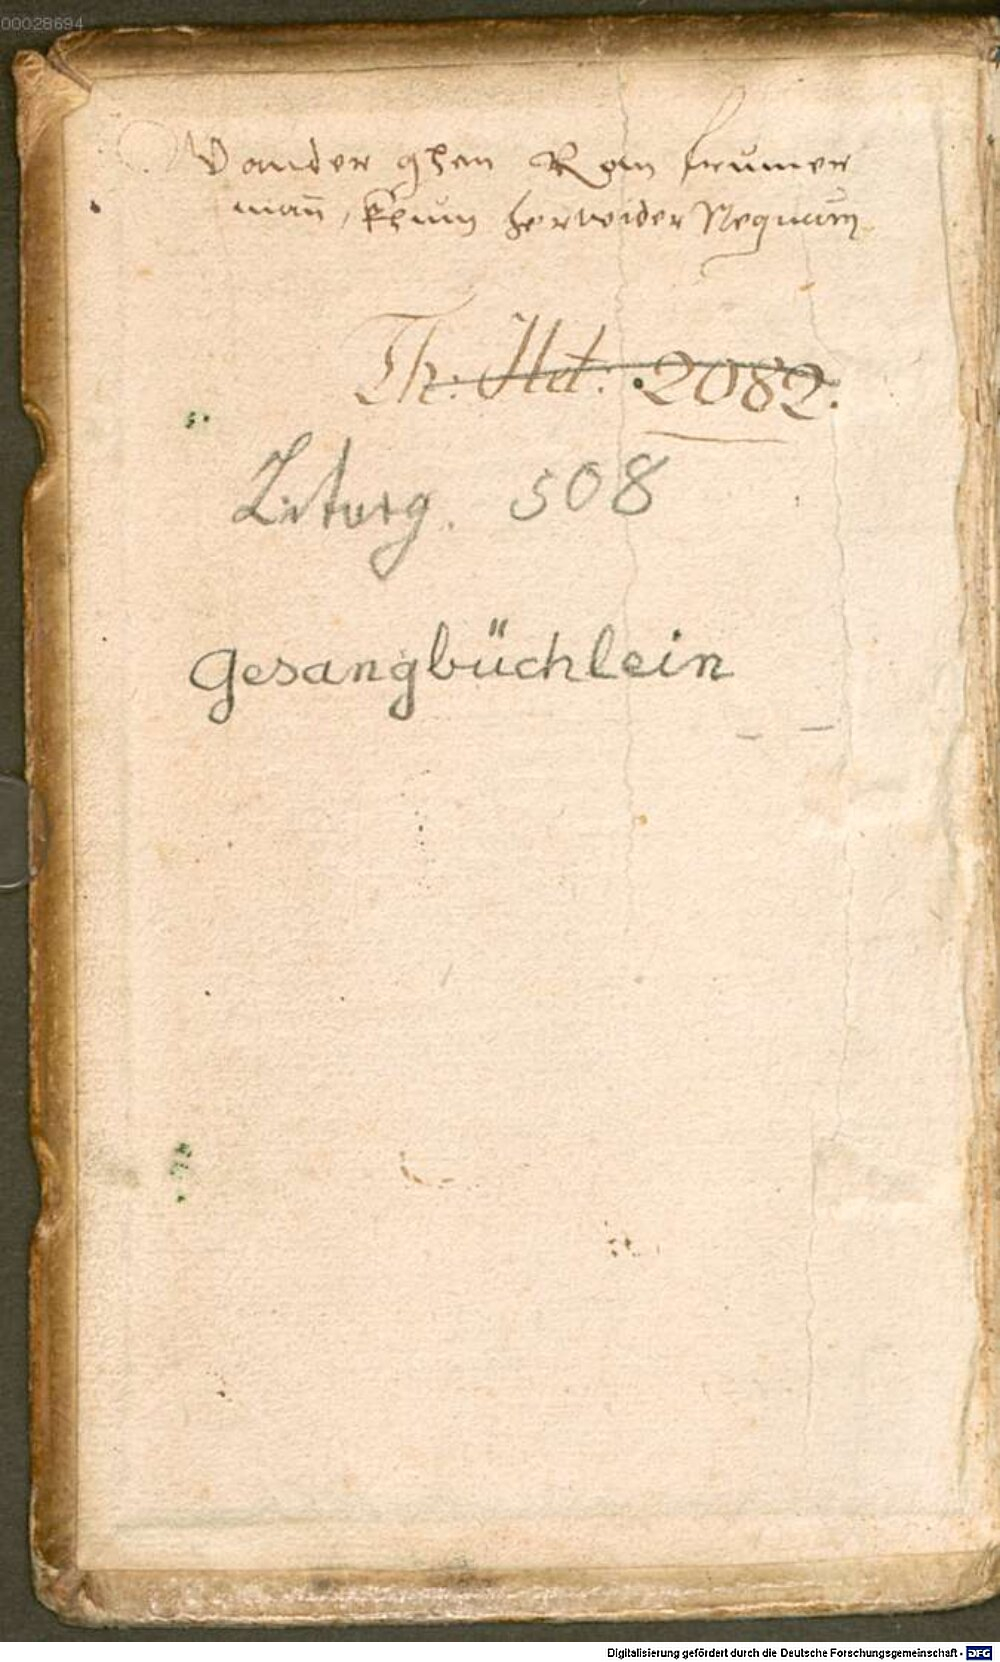 00028694
Wander ghen Rom frumer
mañ, khum herwider Nequam
Th. Ht. 2082.
Liturg. 508
Gesangbüchlein
Digitalisierung gefördert durch die Deutsche Forschungsgemeinschaft - DFG